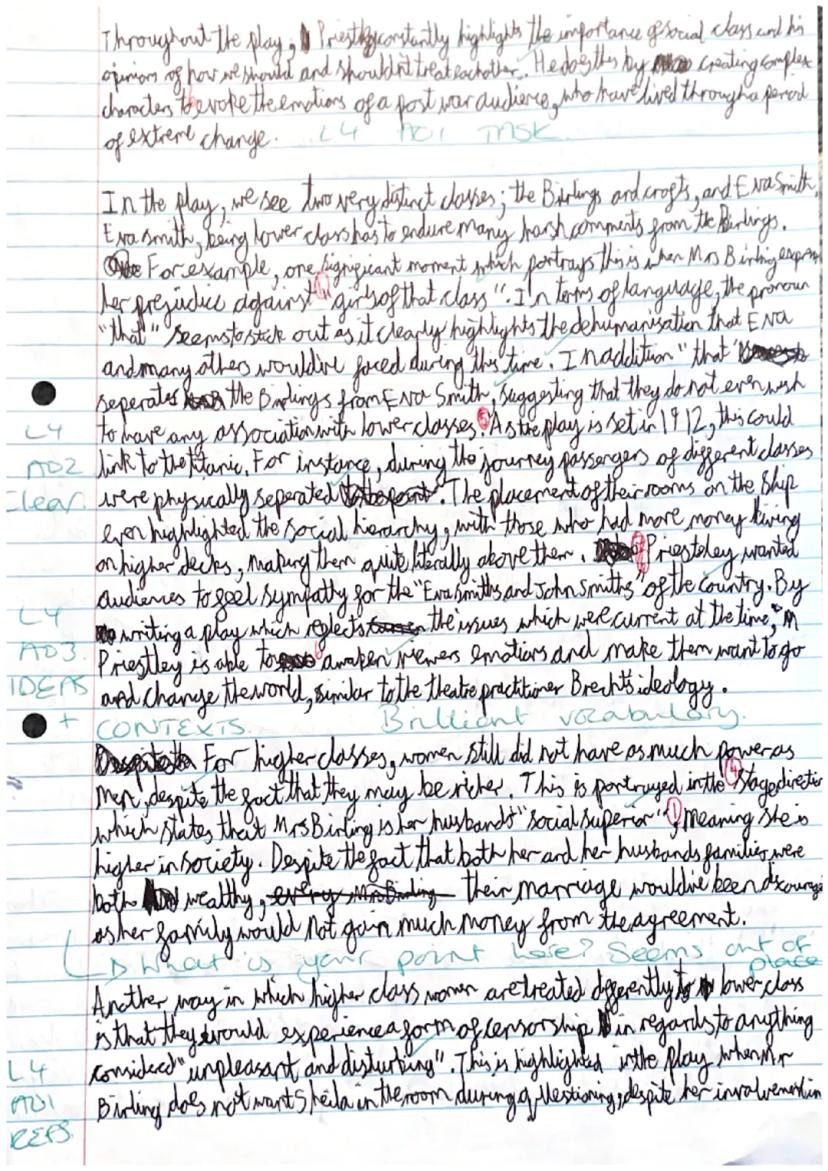 Throughout the play, Priestley constantly highlights the importance of social class and his
opinions of how we should and shouldn't treat eachother. He does this by creating complex
characters to evoke the emotions of a post war audience, who have lived through a period
of extreme change. L4 AO1 TASK
In the play, we see two very distinct classes; the Birlings and crofts, and Eva Smith.
Eva smith, being lower class has to endure many harsh comments from the Birlings.
For example, one significant moment which portrays this is when Mrs Birling express
her prejudice against "girls of that class". In terms of language, the pronoun
"that" seems to stick out as it clearly highlights the dehumanisation that Eva
and many others would've faced during this time. In addition "that"
seperates the Birlings from Eva Smith, suggesting that they do not even wish
to have any association with lower classes. As the play is set in 1912, this could
L4
link to the titanic. For instance, during the journey passengers of different classes
AO2
were physically seperated. The placement of their rooms on the ship
clear
even highlighted the social hierarchy, with those who had more money living
on higher decks, making them quite literally above them. Priestley wanted
audiences to feel sympathy for the "Eva smiths and John smiths" of the country. By
L4
writing a play which reflects the issues which were current at the time,
AO3
Priestley is able to awaken viewers emotions and make them want to go
IDEAS
and change the world, similar to the theatre practitioner Brecht's ideology.
+ CONTEXTS. Brilliant vocabulary.
For higher classes, women still did not have as much power as
men, despite the fact that they may be richer. This is portrayed in the 4 stage direction
which states that Mrs Birling is her husbands "social superior", meaning she is
higher in society. Despite the fact that both her and her husbands families were
both wealthy, their marriage would've been discourage
as her family would not gain much money from the agreement.
What is your point here? Seems out of
place
Another way in which higher class women are treated differently to lower class
is that they would experience a form of censorship in regards to anything
considered "unpleasant and disturbing". This is highlighted in the play when Mr
L4
Birling does not want Sheila in the room during questioning, despite her involvement in
AO1
REFS